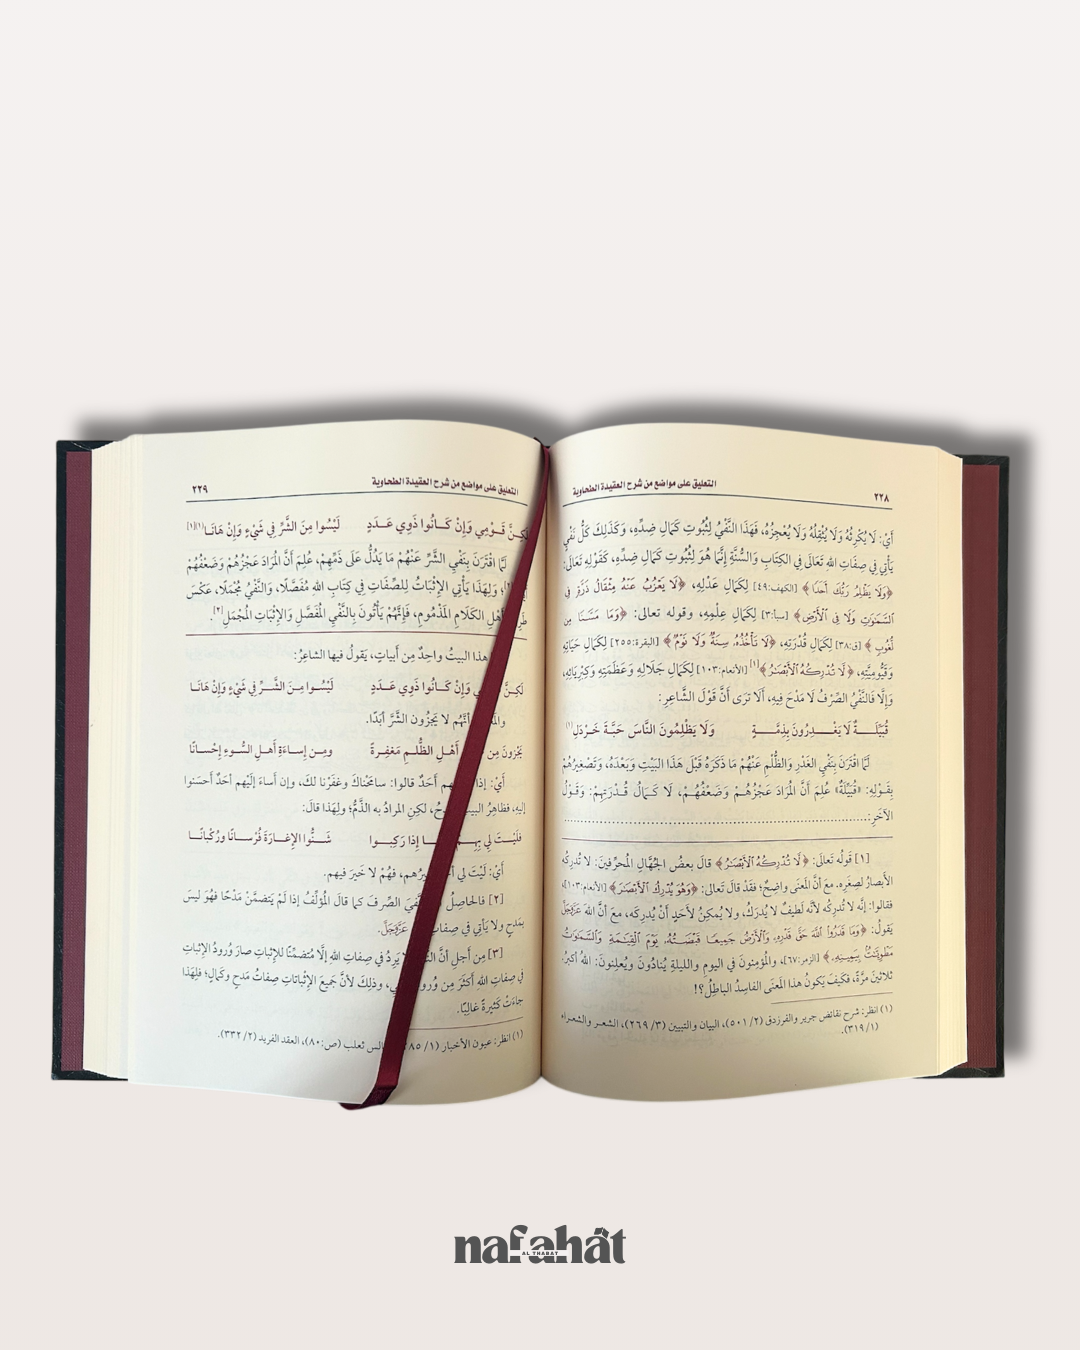 التعليق على مواضع من شرح العقيدة الطحاوية
٢٢٨
أَيْ: لَا يُكْرِثُهُ وَلَا يُثْقِلُهُ وَلَا يُعْجِزُهُ، فَهَذَا النَّفْيُ لِثُبُوتِ كَمَالِ ضِدِّهِ، وَكَذَلِكَ كُلُّ نَفْيٍ
يَأْتِي فِي صِفَاتِ اللهِ تَعَالَى فِي الكِتَابِ وَالسُّنَّةِ إِنَّمَا هُوَ لِثُبُوتِ كَمَالِ ضِدِّهِ، كَقَوْلِهِ تَعَالَى:
﴿وَلَا يَظْلِمُ رَبُّكَ أَحَدًا﴾ [الكهف:٤٩] لِكَمَالِ عَدْلِهِ، ﴿لَا يَعْزُبُ عَنْهُ مِثْقَالُ ذَرَّةٍ فِي
السَّمَوَاتِ وَلَا فِي الْأَرْضِ﴾ [سبأ:٣] لِكَمَالِ عِلْمِهِ، وقوله تعالى: ﴿وَمَا مَسَّنَا مِن
لُّغُوبٍ﴾ [ق:٣٨] لِكَمَالِ قُدْرَتِهِ، ﴿لَا تَأْخُذُهُ سِنَةٌ وَلَا نَوْمٌ﴾ [البقرة:٢٥٥] لِكَمَالِ حَيَاتِهِ
وَقَيُّومِيَّتِهِ، ﴿لَا تُدْرِكُهُ الْأَبْصَارُ﴾[١] [الأنعام:١٠٣] لِكَمَالِ جَلَالِهِ وَعَظَمَتِهِ وَكِبْرِيَائِهِ،
وَإِلَّا فَالنَّفْيُ الصِّرْفُ لَا مَدْحَ فِيهِ، أَلَا تَرَى أَنَّ قَوْلَ الشَّاعِرِ:
قُبَيِّلَـــةٌ لَا يَغْـــدِرُونَ بِذِمَّـــةٍ وَلَا يَظْلِمُونَ النَّاسَ حَبَّةَ خَرْدَلِ(١)
لَمَّا اقْتَرَنَ بِنَفْيِ الغَدْرِ وَالظُّلْمِ عَنْهُمْ مَا ذَكَرَهُ قَبْلَ هَذَا البَيْتِ وَبَعْدَهُ، وَتَصْغِيرُهُمْ
بِقَوْلِهِ: «قُبَيِّلَةٌ» عُلِمَ أَنَّ المُرَادَ عَجْزُهُــمْ وَضَعْفُهُــمْ، لَا كَــمَالُ قُــدْرَتِهِمْ: وَقَــوْلُ
الآخَرِ:...............................................
[١] قَولُه تَعالَى: ﴿لَا تُدْرِكُهُ الْأَبْصَارُ﴾ قالَ بعضُ الجُهَّالِ المُحرِّفينَ: لا تُدرِكُه
الأَبصارُ لصِغَرِه. معَ أنَّ المَعنَى واضِحٌ؛ فقَدْ قالَ تَعالَى: ﴿وَهُوَ يُدْرِكُ الْأَبْصَارَ﴾ [الأنعام:١٠٣]،
فقالوا: إنَّه لا تُدرِكُه لأنَّه لَطيفٌ لا يُدرَكُ، ولا يُمكِنُ لأَحَدٍ أنْ يُدرِكَه، معَ أنَّ اللهَ عَزَّوَجَلَّ
يَقولُ: ﴿وَمَا قَدَرُوا اللَّهَ حَقَّ قَدْرِهِ وَالْأَرْضُ جَمِيعًا قَبْضَتُهُ يَوْمَ الْقِيَامَةِ وَالسَّمَوَاتُ
مَطْوِيَّاتٌ بِيَمِينِهِ﴾ [الزمر:٦٧]، والمُؤمِنونَ في اليومِ والليلةِ يُنادُونَ ويُعلِنونَ: اللهُ أكبَرُ
ثلاثينَ مرَّةً، فكَيفَ يَكونُ هذا المَعنَى الفاسِدُ الباطِلُ؟!
(١) انظر: شرح نقائض جرير والفرزدق (٢/ ٥٠١)، البيان والتبيين (٣/ ٢٦٩)، الشعـر والشعـراء
(١/ ٣١٩).
التعليق على مواضع من شرح العقيدة الطحاوية
٢٢٩
لَكِنَّ قَـوْمِي وَإِنْ كَـانُوا ذَوِي عَـدَدٍ لَيْسُوا مِنَ الشَّرِّ فِي شَيْءٍ وَإِنْ هَانَـا(١)[١]
لَمَّا اقْتَرَنَ بِنَفْيِ الشَّرِّ عَنْهُمْ مَا يَدُلُّ عَلَى ذَمِّهِمْ، عُلِمَ أَنَّ المُرَادَ عَجْزُهُمْ وَضَعْفُهُمْ
وَلِهَذَا يَأْتِي الإِثْبَاتُ لِلصِّفَاتِ فِي كِتَابِ اللهِ مُفَصَّلًا، وَالنَّفْيُ مُجْمَلًا، عَكْسَ
أَهْلِ الكَلَامِ المَذْمُومِ، فَإِنَّهُمْ يَأْتُونَ بِالنَّفْيِ المُفَصَّلِ وَالإِثْبَاتِ المُجْمَلِ[٣].
هذا البيتُ واحِدٌ مِن أَبياتٍ، يَقولُ فيها الشاعِرُ:
لَكِنَّ وَإِنْ كَـانُوا ذَوِي عَـدَدٍ لَيْسُـوا مِـنَ الشَّـرِّ فِي شَيْءٍ وَإِنْ هَانَـا
أنَّهُم لا يَجُرُّون الشَّرَّ أبَدًا.
يَجْزُونَ مِن أَهْـلِ الظُّلْـمِ مَغفِـرةً ومِـن إِسـاءَةِ أَهـلِ السُّـوءِ إِحْسـانَا
أَيْ: إذا أَحَدٌ قالوا: سامَحْناكَ وغفَرْنا لكَ، وإن أَساءَ إلَيْهم أحَدٌ أَحسَنوا
إليه، فظاهِرُ لكِنِ المرادُ به الذَّمُّ؛ ولِهَذا قالَ:
فلَيْـتَ لِي بِهِـمُ إِذا رَكِبـوا شَـنُّوا الإِغـارَةَ فُرْسـانًا ورُكْبانَـا
أَيْ: لَيْتَ لي غيرُهم، فهُمْ لا خَيرَ فيهم.
[٢] فالحاصِلُ الصِّرفَ كما قالَ المُؤلِّفُ إذا لَمْ يَتضمَّنْ مَدْحًا فهُوَ ليسَ
بمَدحٍ ولا يَأتي في صِفاتِ عَزَّوَجَلَّ.
[٣] مِن أَجلِ أنَّ يَرِدُ في صِفاتِ اللهِ إلَّا مُتضمِّنًا للإِثباتِ صارَ وُرودُ الإِثباتِ
في صِفاتِ اللهِ أكثَرَ مِن وذلِكَ لأنَّ جَميعَ الإِثْباتاتِ صِفاتُ مَدحٍ وكَمالٍ؛ فلِهَذا
جاءَتْ كَثيرةً غالِبًا.
(١) انظر: عيون الأخبار (١/ ثعلب (ص:٨٠)، العقد الفريد (٢/ ٣٣٢).
nafahat
AL THABAT